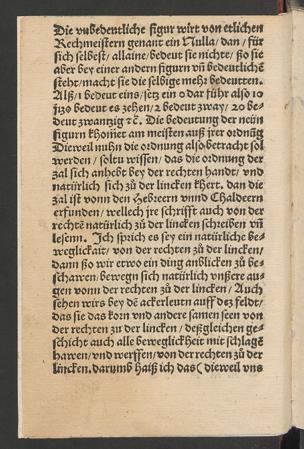 Die vnbedeutliche figur wirt von etlichen
Rechmeistern genant ein Nulla/ dan/ für
sich selbest/ allaine/ bedeut sie nichte/ ßo sie
aber bey einer andern figurn vñ bedeutlichẽ
steht/ macht sie die selbige mehr bedeutten.
Alß/ 1 bedeut eins/ setz ein 0 dar führ also 10
jtzo bedeut es zehen/ 2 bedeut zway/ 20 be-
deut zwantzig ꝛc̃. Die bedeutung der neün
figurn khomet am meisten auß jrer ordnũg
Dieweil nuhn die ordnung also betracht sol
werden/ soltu wissen/ das die ordnung der
zal sich anhebt bey der rechten handt/ vnd
natürlich sich zů der lincken khert. dan die
zal ist vonn den Hebreern vnnd Chaldeern
erfunden/ wellech jre schrifft auch von der
rechtẽ natürlich zů der lincken schreiben vñ
lesenn. Ich sprich es sey ein natürliche be-
weglickait/ von der rechten zů der lincken/
dann ßo wir etwo ein ding anblicken zů be-
schawen/ bewegn sich natürlich vnßere au-
gen vonn der rechten zů der lincken/ Auch
sehen wirs bey dẽ ackerleutn auff dez feldt/
das sie das korn vnd andere samen seen von
der rechten zu der lincken/ deßgleichen ge-
schicht auch alle beweglickheit mit schlagẽ
hawen/ vnd werffen/ von der rechten zů der
lincken. darumb haiß ich das ( dieweil vns